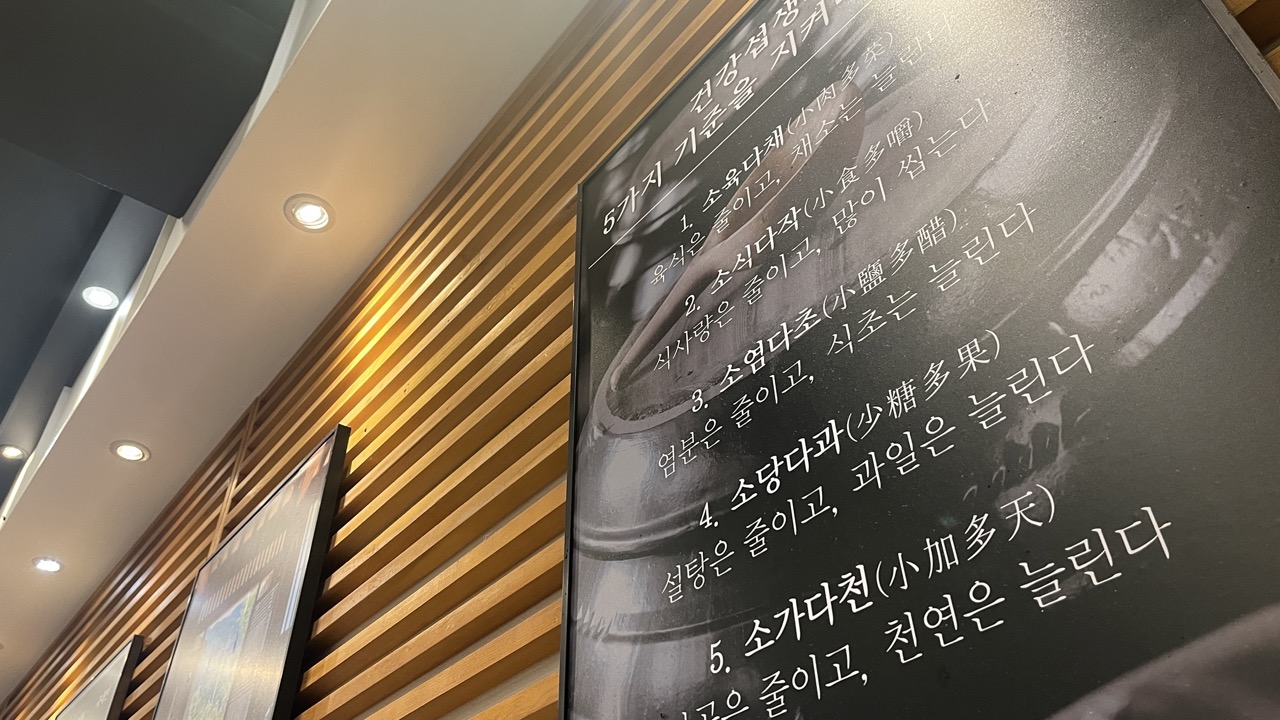 건강섭생
5가지 기준을 지켜
1. 소육다채(小肉多菜)
육식은 줄이고, 채소는 늘린다
2. 소식다작(小食多嚼)
식사량은 줄이고, 많이 씹는다
3. 소염다초(小鹽多醋)
염분은 줄이고, 식초는 늘린다
4. 소당다과(少糖多果)
설탕은 줄이고, 과일은 늘린다
5. 소가다천(小加多天)
줄이고, 천연은 늘린다